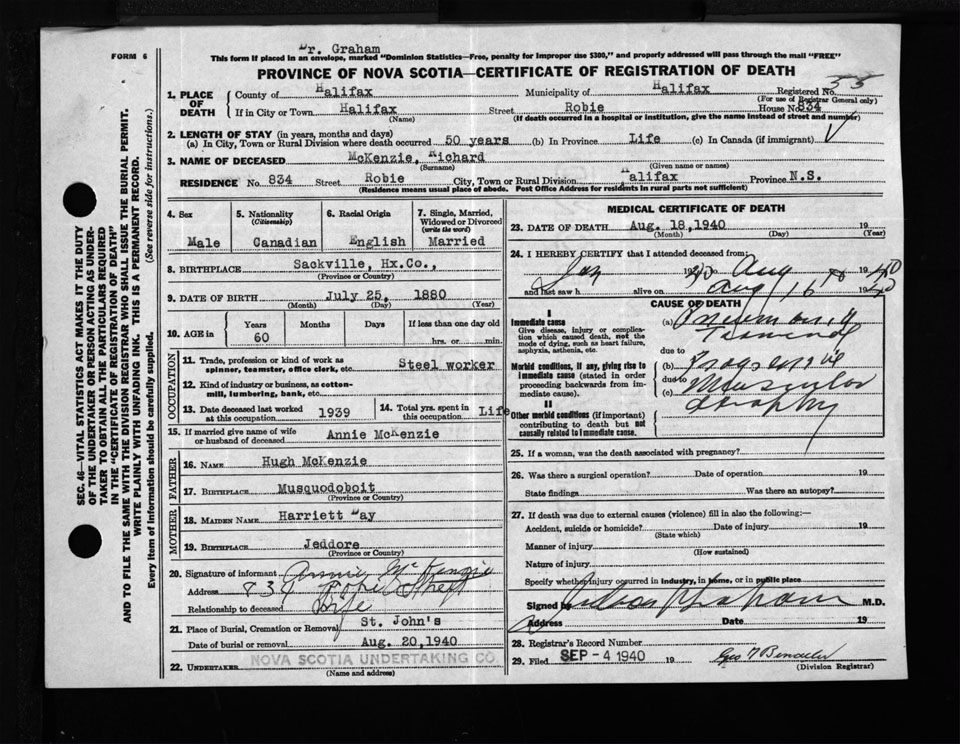 Dr. Graham
FORM 6
This form if placed in an envelope, marked "Dominion Statistics—Free, penalty for improper use $300," and properly addressed will pass through the mail "FREE"
PROVINCE OF NOVA SCOTIA—CERTIFICATE OF REGISTRATION OF DEATH
1. PLACE OF DEATH
County of Halifax Municipality of Halifax Registered No. 55
(For use of Registrar General only)
If in City or Town Halifax Street Robie House No. 834
(Name) (If death occurred in a hospital or institution, give the name instead of street and number)
2. LENGTH OF STAY (in years, months and days)
(a) In City, Town or Rural Division where death occurred 50 years (b) In Province Life (c) In Canada (if immigrant)
3. NAME OF DECEASED McKenzie, Richard
(Surname) (Given name or names)
RESIDENCE No. 834 Street Robie City, Town or Rural Division Halifax Province N.S.
(Residence means usual place of abode. Post Office Address for residents in rural parts not sufficient)
4. Sex
Male
5. Nationality
(Citizenship)
Canadian
6. Racial Origin
English
7. Single, Married,
Widowed or Divorced
(write the word)
Married
8. BIRTHPLACE Sackville, Hx.Co.,
(Province or Country)
9. DATE OF BIRTH July 25, 1880
(Month) (Day) (Year)
10. AGE in
Years Months Days If less than one day old
60 hrs. or min.
OCCUPATION
11. Trade, profession or kind of work as
spinner, teamster, office clerk, etc. Steel worker
12. Kind of industry or business, as cotton-
mill, lumbering, bank, etc.
13. Date deceased last worked
at this occupation 1939
14. Total yrs. spent in
this occupation Life
15. If married give name of wife
or husband of deceased Annie McKenzie
FATHER
16. NAME Hugh McKenzie
17. BIRTHPLACE Musquodoboit
(Province or Country)
MOTHER
18. MAIDEN NAME Harriett Day
19. BIRTHPLACE Jeddore
(Province or Country)
20. Signature of informant Annie McKenzie
Address 834 Robie Street
Relationship to deceased Wife
21. Place of Burial, Cremation or Removal St. John's
Date of burial or removal Aug. 20, 1940
22. UNDERTAKER NOVA SCOTIA UNDERTAKING CO.
(Name and address)
MEDICAL CERTIFICATE OF DEATH
23. DATE OF DEATH Aug. 18, 1940 19
(Month) (Day) (Year)
24. I HEREBY CERTIFY that I attended deceased from:
Jan 1940 Aug 18 1940
and last saw h alive on Aug 16 1940
CAUSE OF DEATH
I
Immediate cause
Give disease, injury or complica-
tion which caused death, not the
mode of dying, such as heart failure,
asphyxia, asthenia, etc.
(a) Pneumonia
Terminal
due to
Morbid conditions, if any, giving rise to
immediate cause (stated in order
proceeding backwards from im-
mediate cause).
(b) Progressive
due to
(c) Muscular
atrophy
II
Other morbid conditions (if important)
contributing to death but not
causally related to immediate cause.
25. If a woman, was the death associated with pregnancy?
26. Was there a surgical operation? Date of operation 19
State findings Was there an autopsy?
27. If death was due to external causes (violence) fill in also the following:—
Accident, suicide or homicide? Date of injury 19
(State which)
Manner of injury
(How sustained)
Nature of injury
Specify whether injury occurred in industry, in home, or in public place
Signed by Graham M.D.
Address Date 19
28. Registrar's Record Number
29. Filed SEP - 4 1940 19
(Division Registrar)
SEC. 46—VITAL STATISTICS ACT MAKES IT THE DUTY
OF THE UNDERTAKER OR PERSON ACTING AS UNDER-
TAKER TO OBTAIN ALL THE PARTICULARS REQUIRED
IN THE "CERTIFICATE OF REGISTRATION OF DEATH"
AND TO FILE THE SAME WITH THE DIVISION REGISTRAR WHO SHALL ISSUE THE BURIAL PERMIT.
WRITE PLAINLY WITH UNFADING INK. THIS IS A PERMANENT RECORD.
Every item of information should be carefully supplied. (See reverse side for instructions.)